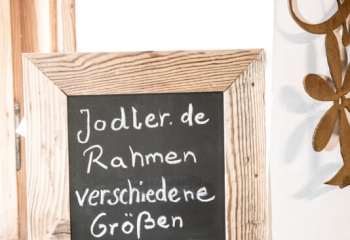 Jodler.de
Rahmen
verschiedene
Größen